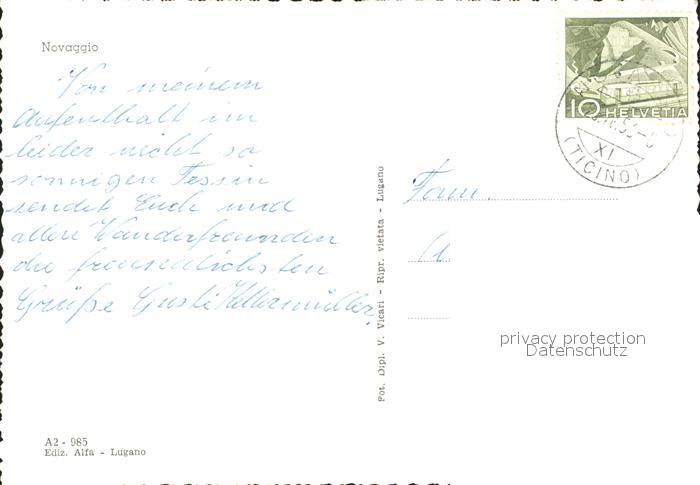 Novaggio
Von meinem
Aufenthalt im
leider nicht so
sonnigen Tessin
sendet Euch und
allen Wanderfreunden
die freundlichsten
Grüße Gusti
Fam.
10 HELVETIA
XI
(TICINO)
Fot. Dipl. V. Vicari - Ripr. vietata - Lugano
privacy protection
Datenschutz
A2 - 985
Ediz. Alfa - Lugano